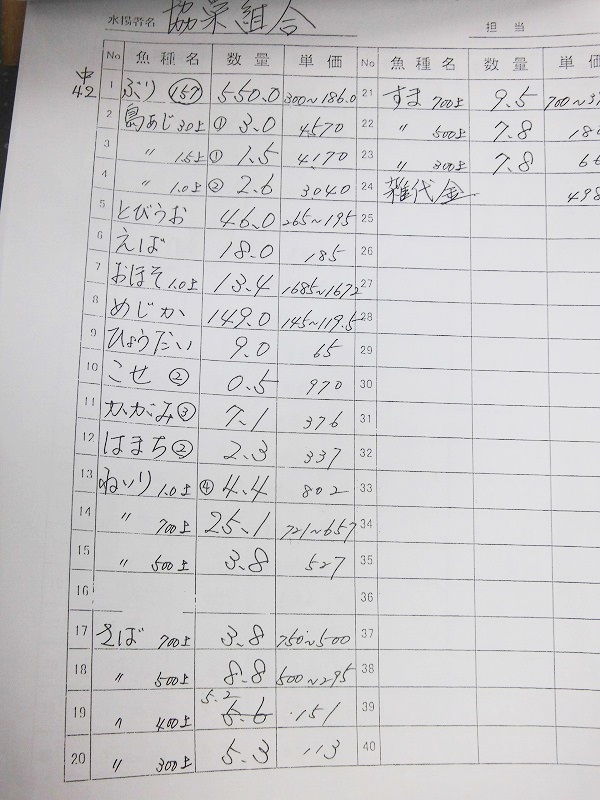 水揚者名 協栄組合
担当
No 魚種名 数量 単価 No 魚種名 数量 単価
中42
1 ぶり 157 550.0 300~186.0
2 島あじ 3.0上 ① 3.0 4570
3 〃 1.5上 ① 1.5 4170
4 〃 1.0上 ② 2.6 3040
5 とびうお 46.0 265~195
6 えば 18.0 185
7 おほそ 1.0上 13.4 1685~1672
8 めじか 149.0 145~119.5
9 ひょうだい 9.0 65
10 こせ ② 0.5 970
11 かがみ ③ 7.1 376
12 はまち ② 2.3 337
13 ねいり 1.0上 ④ 4.4 802
14 〃 700上 25.1 721~657
15 〃 500上 3.8 527
16
17 さば 700上 3.8 750~500
18 〃 500上 8.8 500~295
19 〃 400上 5.2 151
20 〃 300上 5.3 113
21 すま 700上 9.5 700~
22 〃 500上 7.8
23 〃 300上 7.8
24 雑代金 498
25
26
27
28
29
30
31
32
33
34
35
36
37
38
39
40